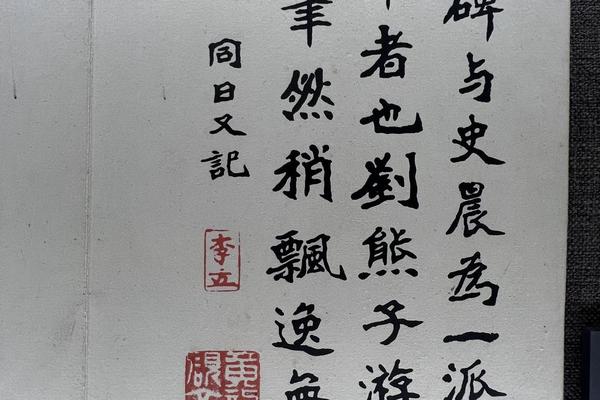 碑与史晨為一派
者也劉熊子游
筆然稍飄逸無
同日又記
李立